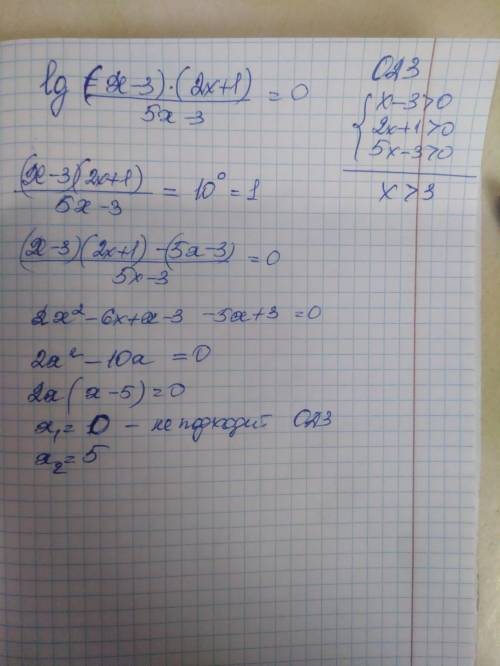 lg (x-3)·(2x+1) / 5x-3 = 0
ОДЗ
{ x-3>0
2x+1>0
5x-3>0
x>3
(x-3)(2x+1) / 5x-3 = 10⁰ = 1
(x-3)(2x+1)-(5x-3) / 5x-3 = 0
2x²-6x+x-3 -5x+3 =0
2x²-10x =0
2x(x-5)=0
x₁=0 - не подходит ОДЗ
x₂=5